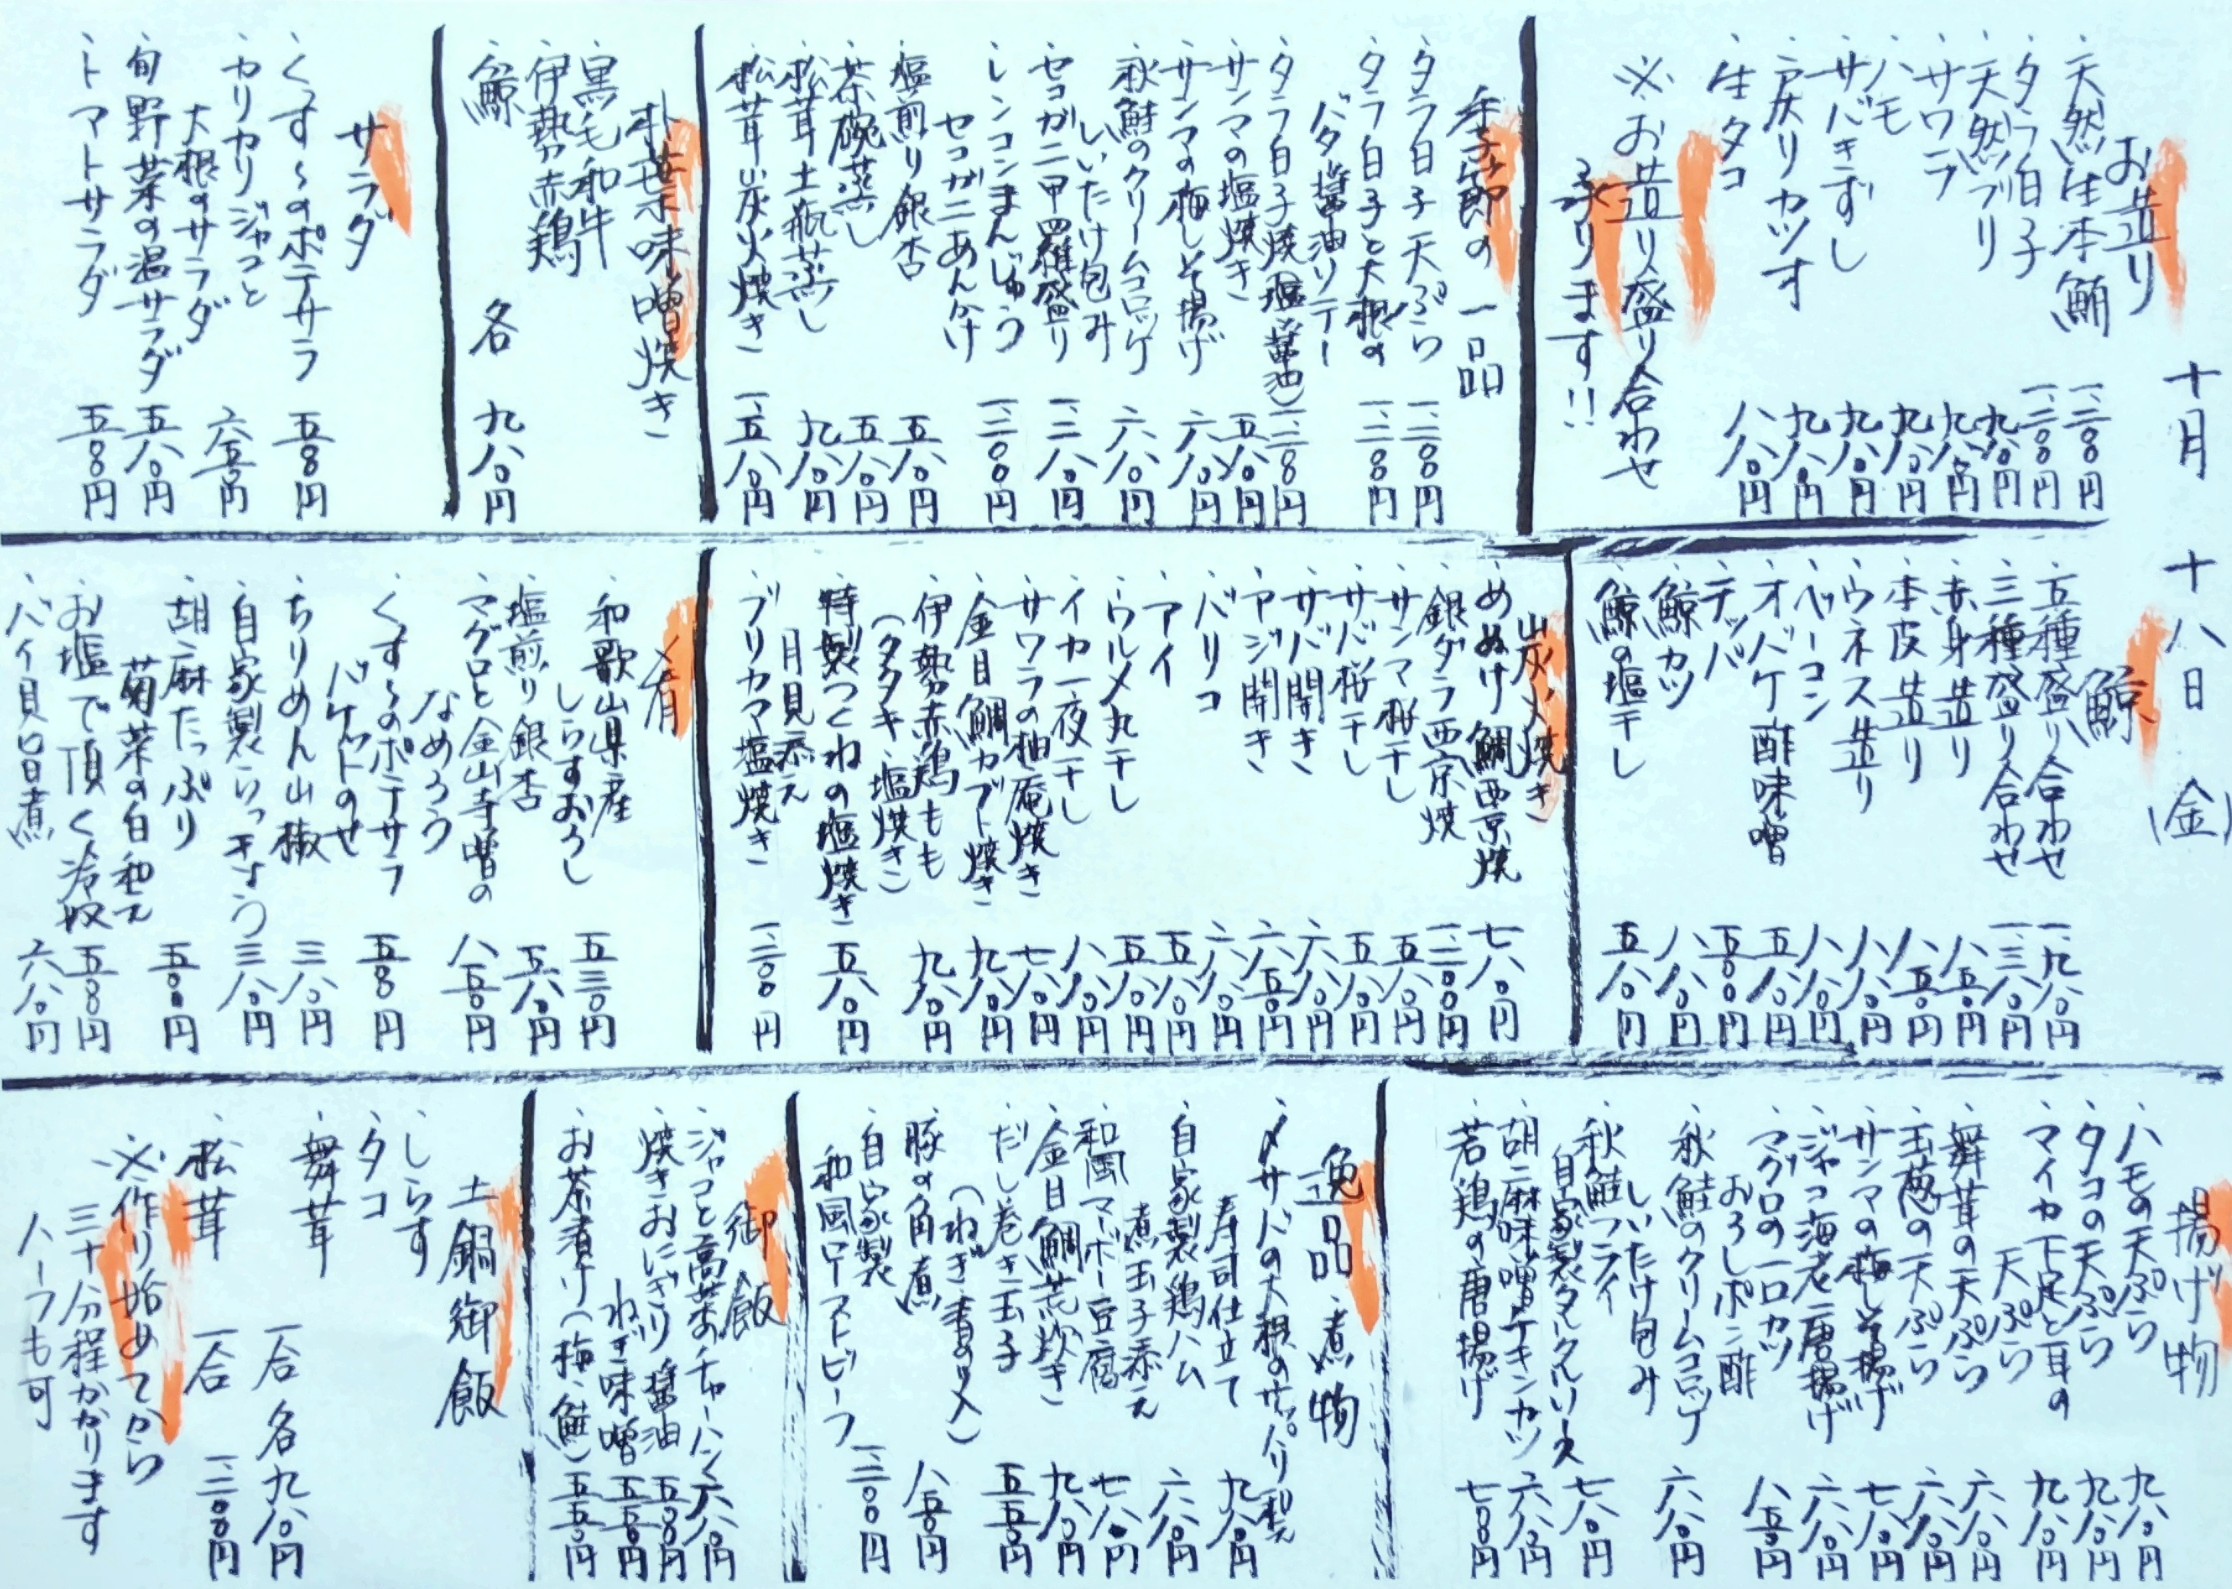 十月 十八日 (金)
お造り
・天然生本鮪 一、二〇〇円
・タラ白子 一、二〇〇円
・天然ブリ 九八〇円
・サワラ 九八〇円
・ハモ 九八〇円
・サバきずし 九八〇円
・戻りカツオ 九八〇円
・生タコ 八八〇円
※お造り盛り合わせ
承ります!!
季節の一品
・タラ白子天ぷら 一、二〇〇円
・タラ白子と大根の
バタ醤油ソテー 一、二〇〇円
・タラ白子焼(塩、醤油) 一、二〇〇円
・サンマの塩焼き 五八〇円
・サンマの梅しそ揚げ 六八〇円
・秋鮭のクリームコロッケ
しいたけ包み 六八〇円
・セコガニ甲羅盛り 一、二八〇円
・レンコンまんじゅう
セコガニあんかけ 一、二〇〇円
・塩煎り銀杏 五八〇円
・茶碗蒸し 五八〇円
・松茸土瓶蒸し 九八〇円
・松茸炭火焼き 一、五八〇円
朴葉味噌焼き
・黒毛和牛
・伊勢赤鶏
・鯨 各 九八〇円
サラダ
・くす〜のポテサラ 五〇〇円
・カリカリジャコと
大根のサラダ 六五〇円
・旬野菜の温サラダ 五八〇円
・トマトサラダ 五〇〇円
鯨
・五種盛り合わせ 一、九八〇円
・三種盛り合わせ 一、三八〇円
・赤身造り 八五〇円
・本皮造り 八五〇円
・ウネス造り 八八〇円
・ベーコン 八八〇円
・オバケ酢味噌 五八〇円
・テッパ 五〇〇円
・鯨カツ 八八〇円
・鯨の塩干し 五八〇円
炭火焼き
・めぬけ鯛西京焼 七八〇円
・銀ダラ西京焼 一、二〇〇円
・サンマ桜干し 五八〇円
・サバ桜干し 五八〇円
・サバ開き 六八〇円
・アジ開き 六五〇円
・バリコ 六八〇円
・アイ 五八〇円
・ウルメ丸干し 五八〇円
・イカ一夜干し 八八〇円
・サワラの柚庵焼き 七八〇円
・金目鯛カブト焼き 九八〇円
・伊勢赤鶏もも
(タタキ・塩焼き) 九八〇円
・特製つくねの塩焼き
月見添え 五八〇円
・ブリカマ塩焼き 一、二〇〇円
肴
・和歌山県産
しらすおろし 五三〇円
・塩煎り銀杏 五八〇円
・マグロと金山寺噌の
なめろう 八五〇円
・くす〜のポテサラ
バケットのせ 五〇〇円
・ちりめん山椒 三八〇円
・自家製らっきょう 三八〇円
・胡麻たっぷり
菊菜の白和え 五〇〇円
・お塩で頂く冷奴 五〇〇円
・バイ貝旨煮 六八〇円
揚げ物
・ハモの天ぷら 九八〇円
・タコの天ぷら 九八〇円
・マイカ下足と耳の
天ぷら 九八〇円
・舞茸の天ぷら 六八〇円
・玉葱の天ぷら 六八〇円
・サンマの梅しそ揚げ 七八〇円
・ジャコ海老唐揚げ 六八〇円
・マグロの一口カツ
おろしポン酢 八五〇円
・秋鮭のクリームコロッケ
しいたけ包み 六八〇円
・秋鮭フライ
自家製タルタルソース 七八〇円
・胡麻味噌チキンカツ 六八〇円
・若鶏の唐揚げ 七〇〇円
逸品・煮物
・〆サバの大根のサッパリ和え
寿司仕立て 九八〇円
・自家製鶏ハム
煮玉子添え 六八〇円
・和風マーボー豆腐 七八〇円
・金目鯛荒炊き 九八〇円
・だし巻き玉子
(ねぎ・青のり入) 五五〇円
・豚の角煮 八五〇円
・自家製
和風ローストビーフ 一、二〇〇円
御飯
・ジャコと高菜のチャーハン 六八〇円
・焼きおにぎり 醤油 五〇〇円
ねぎ味噌 五五〇円
・お茶漬け(梅、鮭) 五五〇円
土鍋御飯
・しらす
・タコ
・舞茸 一合 各九八〇円
・松茸 一合 一、二〇〇円
※作り始めてから
三十分程かかります
ハーフも可